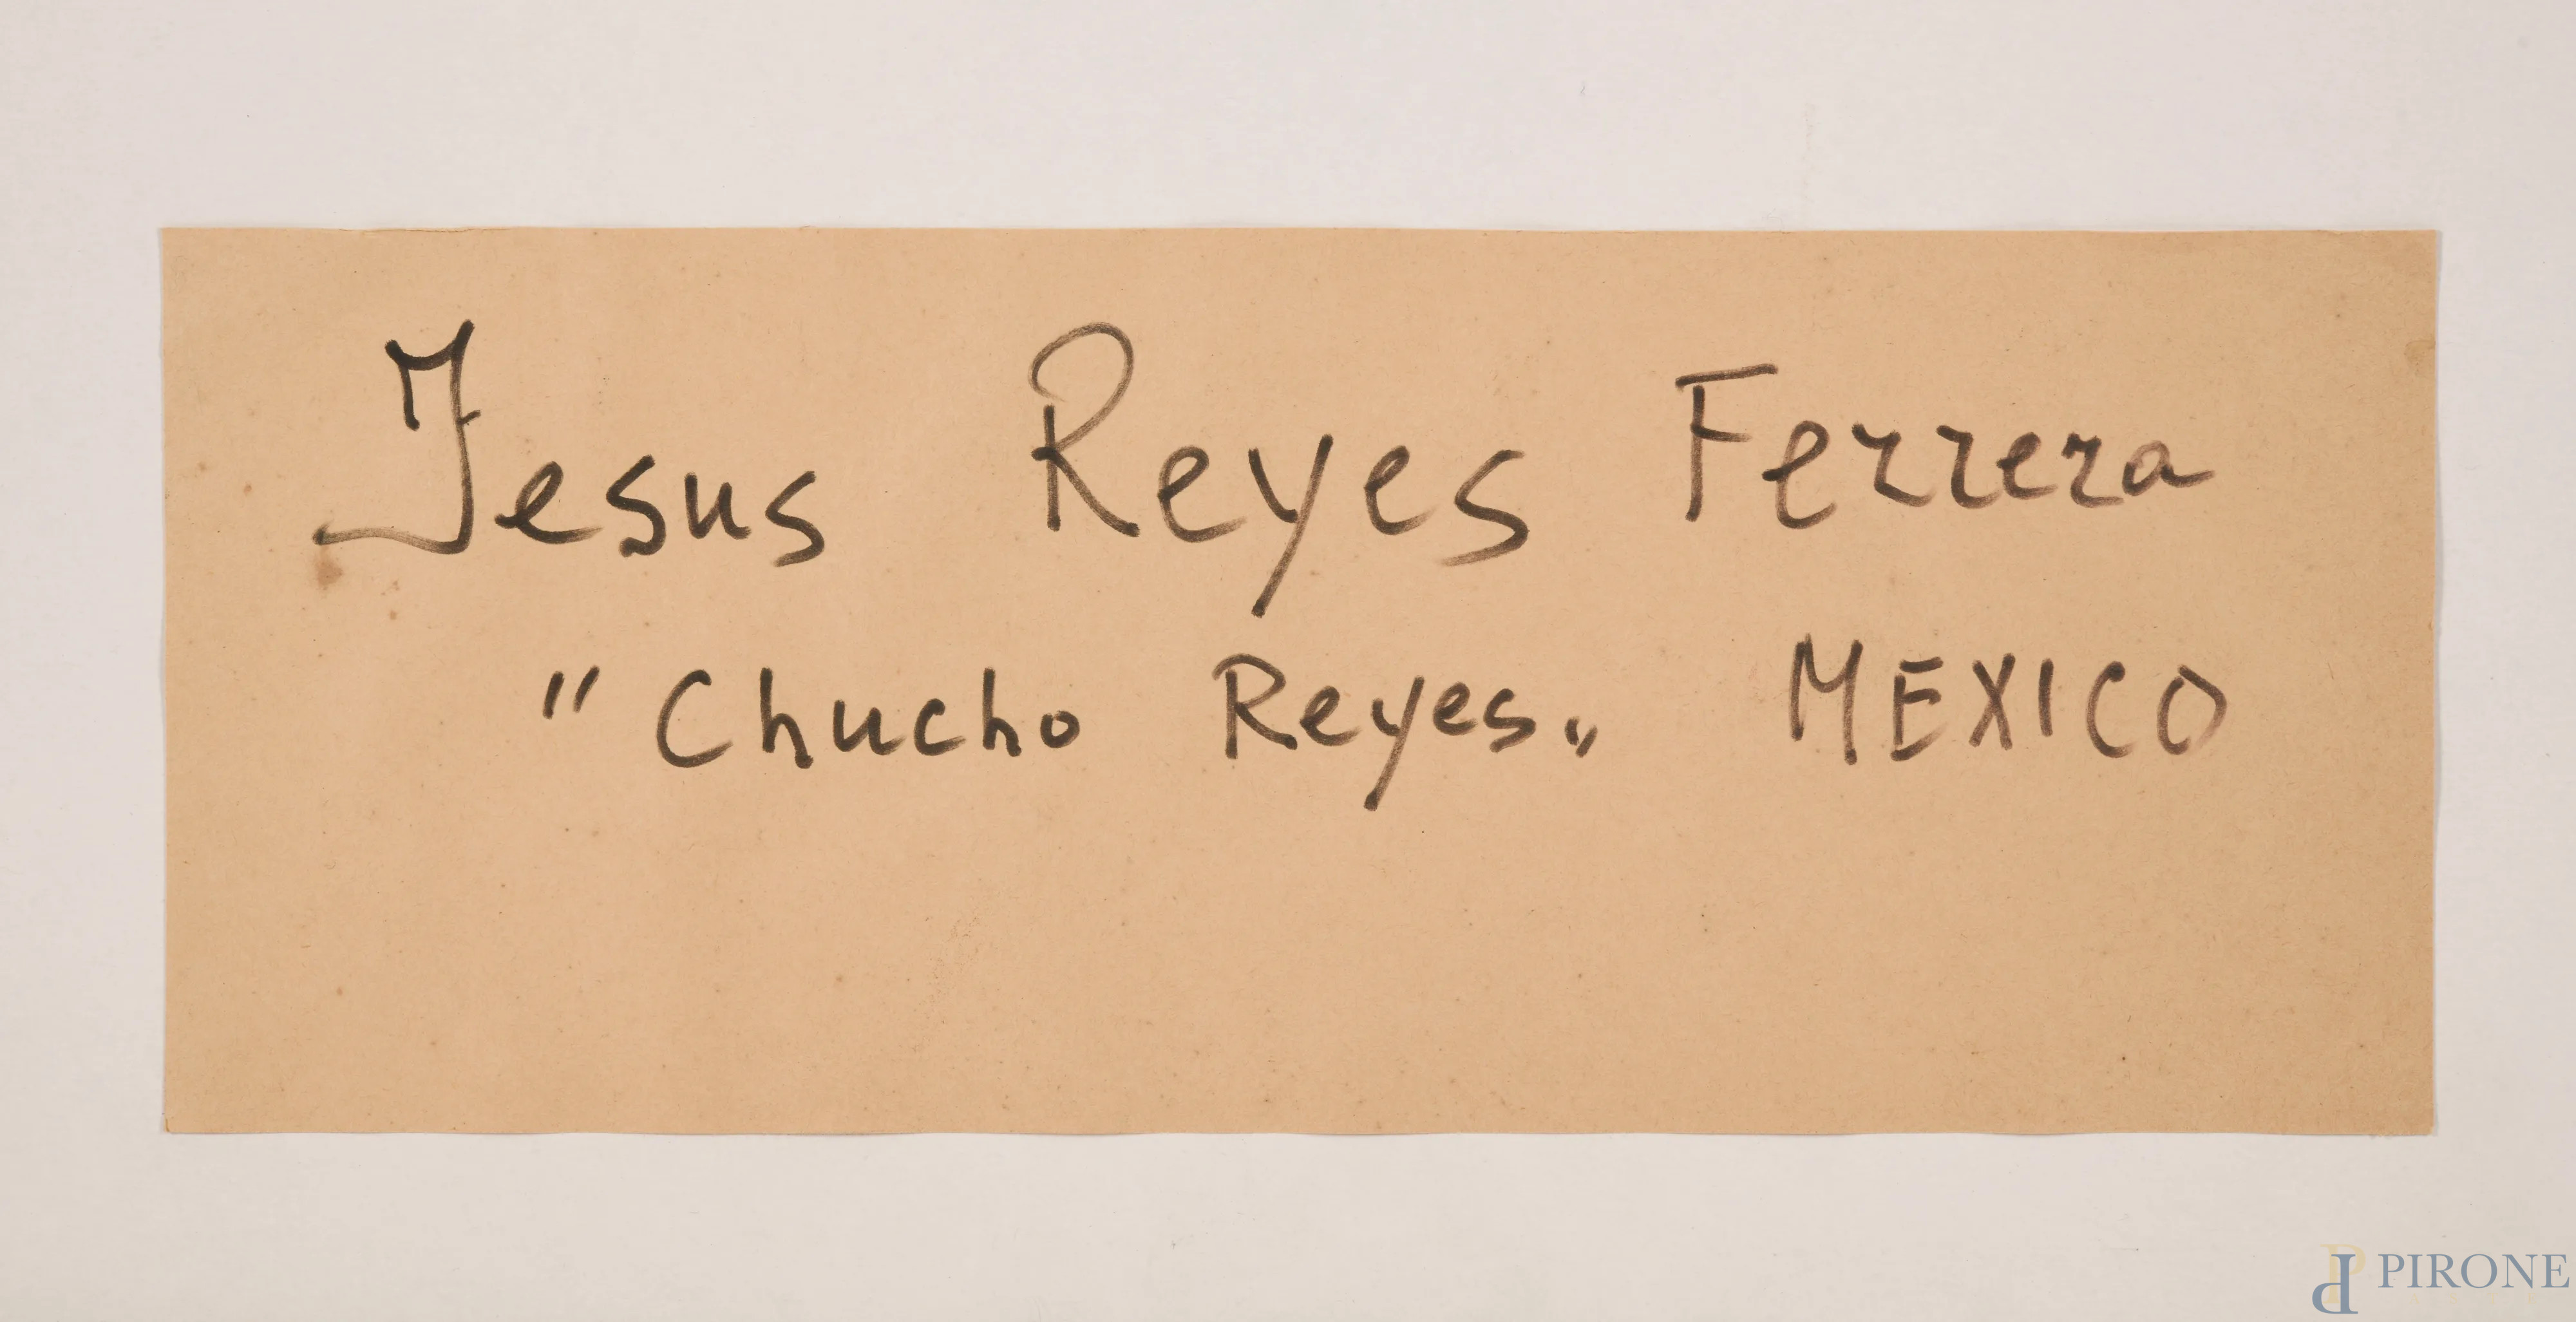 Jesus Reyes Ferrera
"Chucho Reyes„ MEXICO
PIRONE